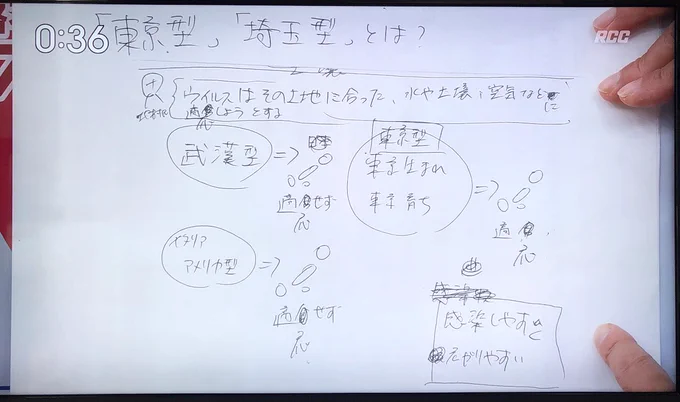 0:36
RCC
「東京型」「埼玉型」とは?
ウイルスはその土地に合った、水や土壌、空気などに
適応しようとする
武漢型
⇒
日本
適応せず
東京型
東京生まれ
東京育ち
⇒
適応
イタリア
アメリカ型
⇒
適応せず
感染しやすく
広がりやすい